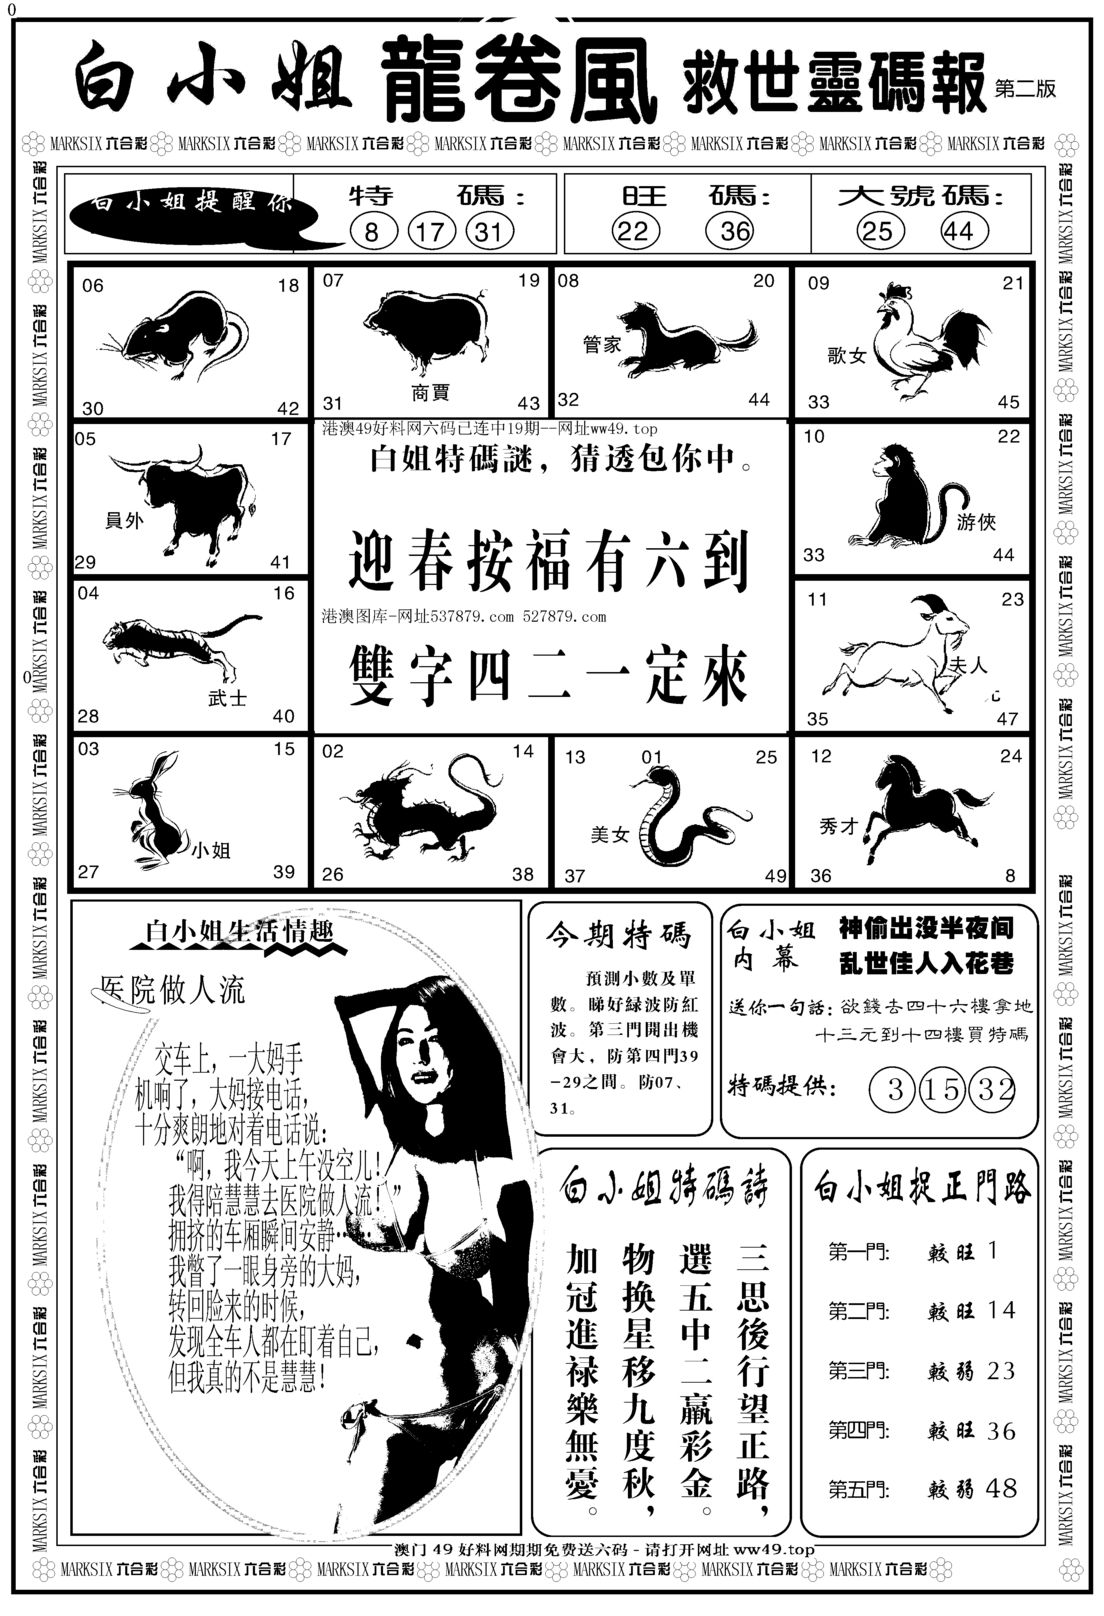 0
白小姐 龍卷風 救世靈碼報 第二版
MARKSIX 六合彩 MARKSIX 六合彩 MARKSIX 六合彩 MARKSIX 六合彩 MARKSIX 六合彩 MARKSIX 六合彩 MARKSIX 六合彩 MARKSIX 六合彩
白小姐提醒你
特 碼:
8 17 31
旺 碼:
22 36
大號碼:
25 44
06 18
30 42
07 19
商賈
31 43
08 20
管家
32 44
09 21
歌女
33 45
05 17
員外
29 41
港澳49好料网六码已连中19期--网址ww49.top
白姐特碼謎，猜透包你中。
迎春按福有六到
港澳图库-网址537879.com 527879.com
雙字四二一定來
10 22
游俠
33 44
04 16
武士
28 40
11 23
夫人
35 47
0
03 15
小姐
27 39
02 14
26 38
13 01 25
美女
37 49
12 24
秀才
36 8
白小姐生活情趣
医院做人流
交车上，一大妈手
机响了，大妈接电话，
十分爽朗地对着电话说：
“啊，我今天上午没空儿！
我得陪慧慧去医院做人流！”
拥挤的车厢瞬间安静……
我瞥了一眼身旁的大妈，
转回脸来的时候，
发现全车人都在盯着自己，
但我真的不是慧慧！
今期特碼
預測小數及單
數。睇好緑波防紅
波。第三門開出機
會大，防第四門39
-29之間。防07、
31。
白小姐內幕
神偷出没半夜间
乱世佳人入花巷
送你一句話：欲錢去四十六樓拿地
十三元到十四樓買特碼
特碼提供： 3 15 32
白小姐特碼詩
三思後行望正路，
選五中二贏彩金。
物换星移九度秋，
加冠進禄樂無憂。
白小姐捉正門路
第一門: 較旺 1
第二門: 較旺 14
第三門: 較弱 23
第四門: 較旺 36
第五門: 較弱 48
澳门 49 好料网期期免费送六码 - 请打开网址 ww49.top
MARKSIX 六合彩 MARKSIX 六合彩 MARKSIX 六合彩 MARKSIX 六合彩 MARKSIX 六合彩 MARKSIX 六合彩 MARKSIX 六合彩